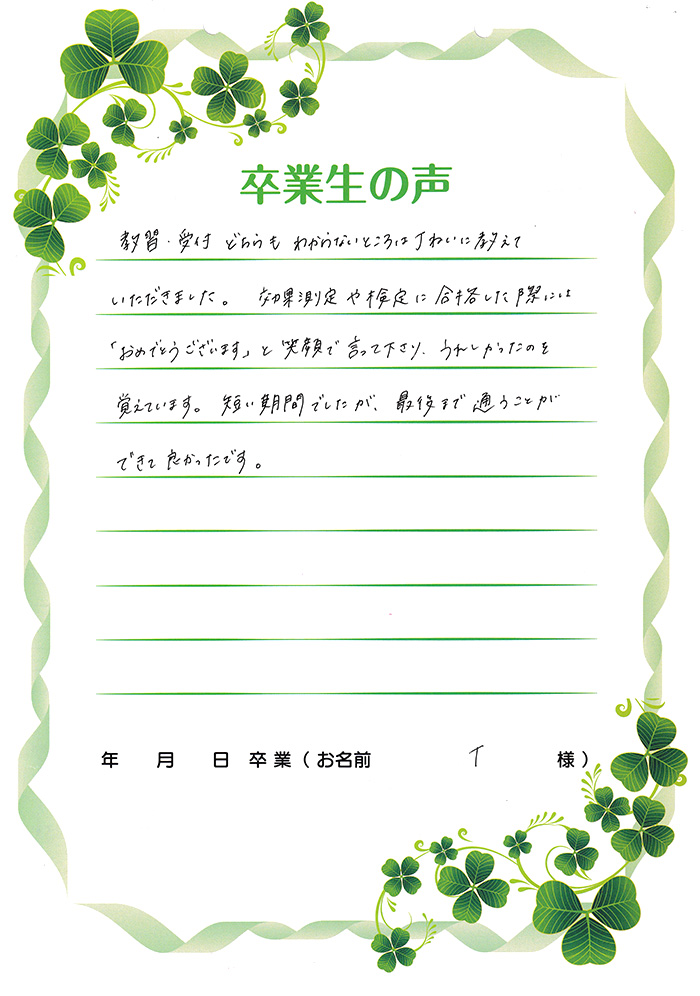 卒業生の声
教習・受付 どちらも わからないところは丁ねいに教えて
いただきました。 効果測定や検定に合格した際には
「おめでとうございます」と笑顔で言って下さり、うれしかったのを
覚えています。 短い期間でしたが、最後まで通うことが
できて良かったです。
年 月 日 卒業（お名前 T 様）